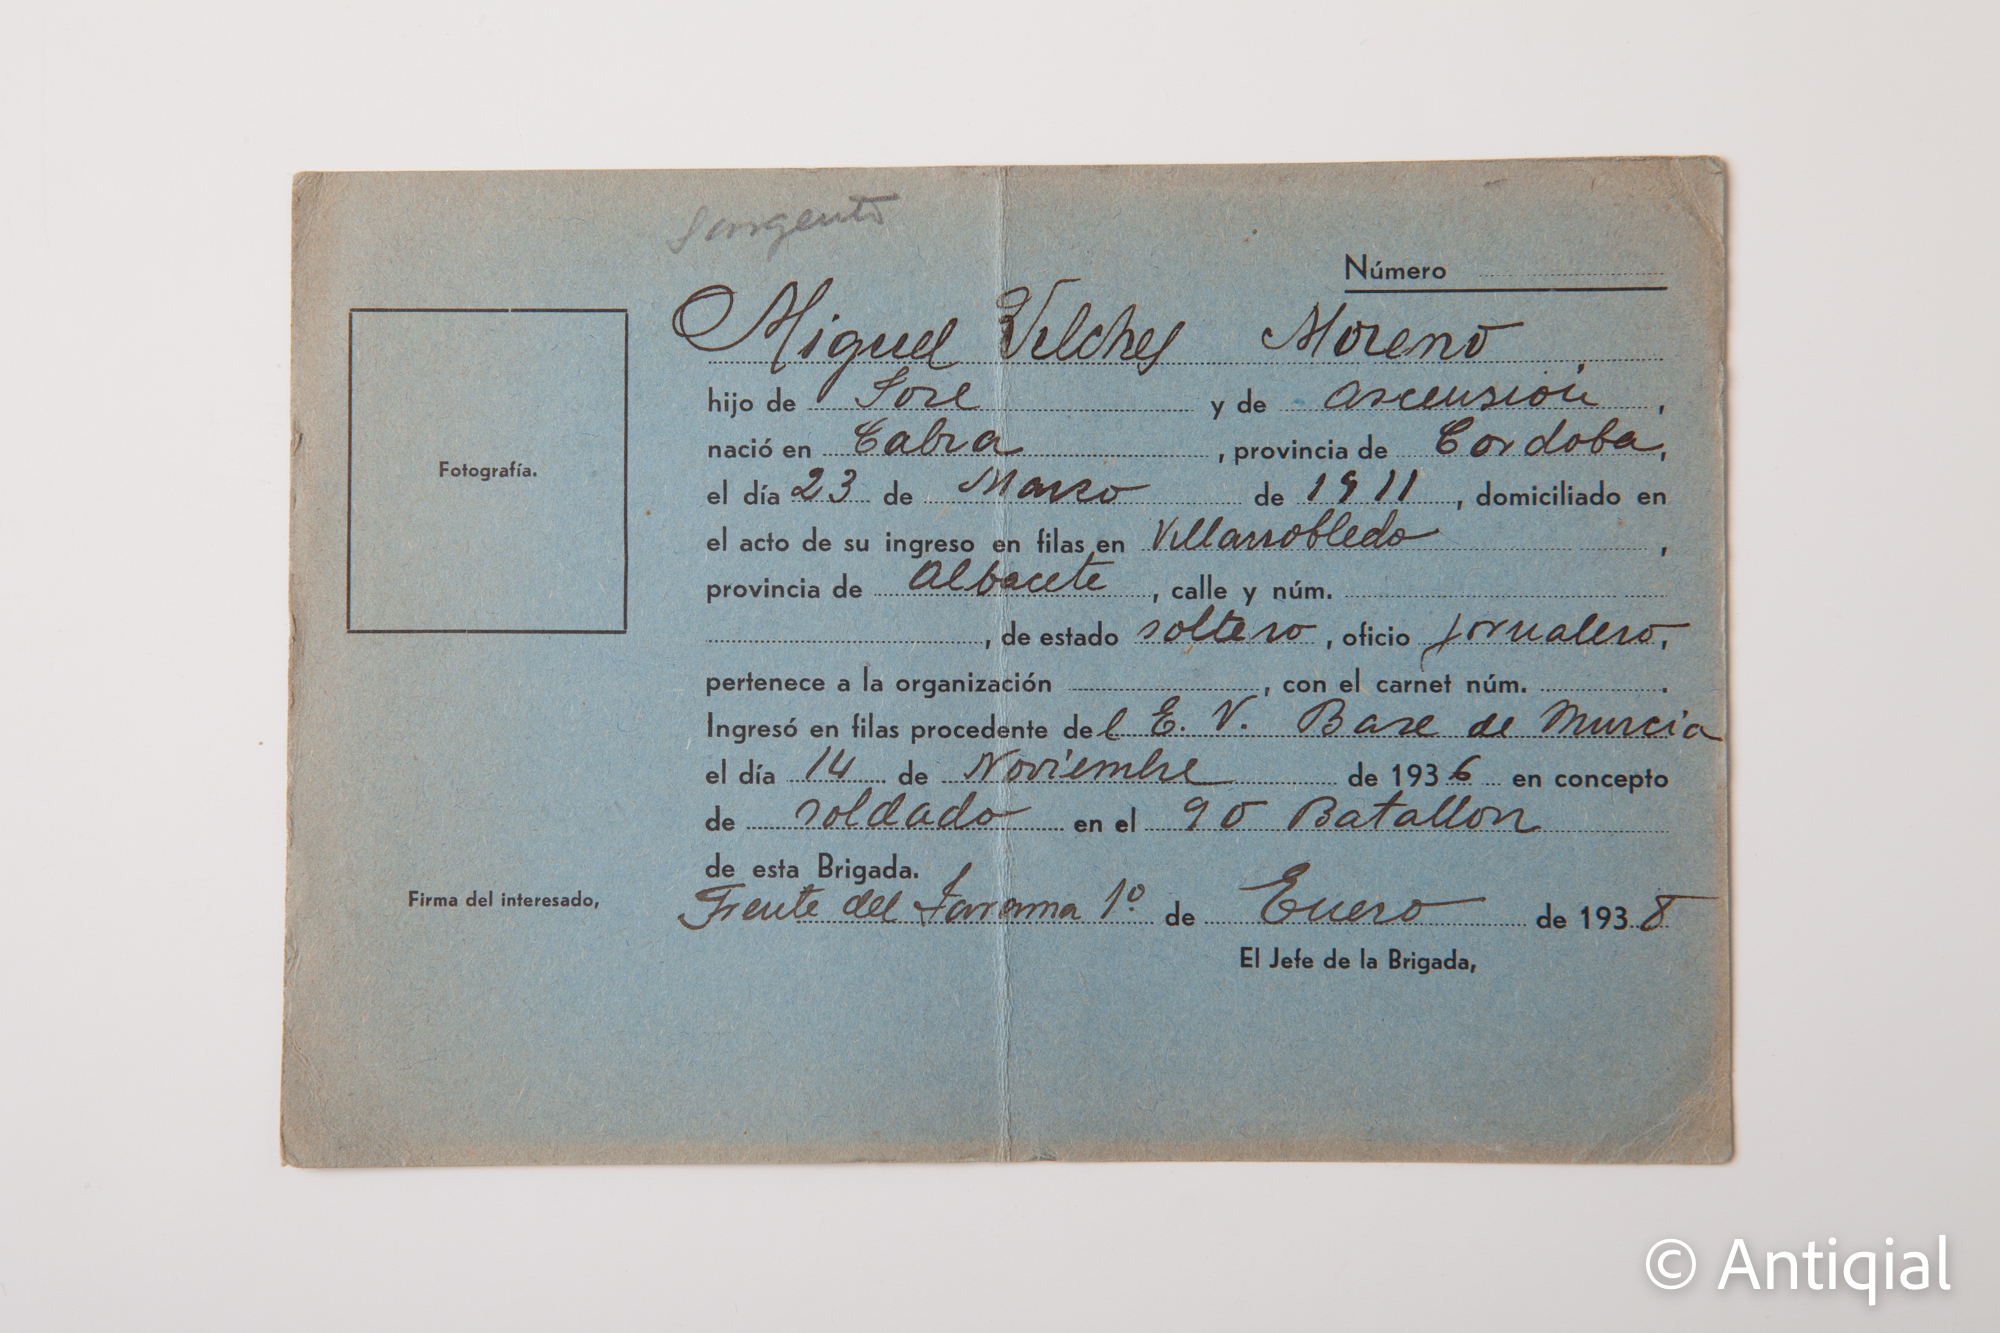 Sargento
Número
Miguel Vilches Moreno
hijo de Jose y de ascensión,
nació en Cabra, provincia de Cordoba,
el día 23 de Marzo de 1911, domiciliado en
el acto de su ingreso en filas en Villarrobledo,
provincia de Albacete, calle y núm.
, de estado soltero, oficio jornalero,
Fotografía.
pertenece a la organización , con el carnet núm. .
Ingresó en filas procedente del E. V. Base de Murcia
el día 14 de Noviembre de 1936 en concepto
de soldado en el 90 Batallon
de esta Brigada.
Firma del interesado,
Frente del Jarama 1º de Enero de 1938
El Jefe de la Brigada,
© Antiqial